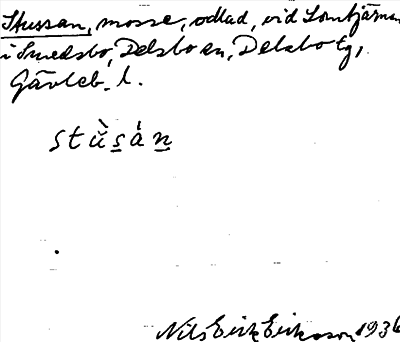 Stussan, mosse, odlad, vid Lomtjärnen
i Smedsbo, Delsbo sn, Delsbo tg,
Gävleb. l.
stu̇̀s̲án̲
Nils Erik Eriksson 1936